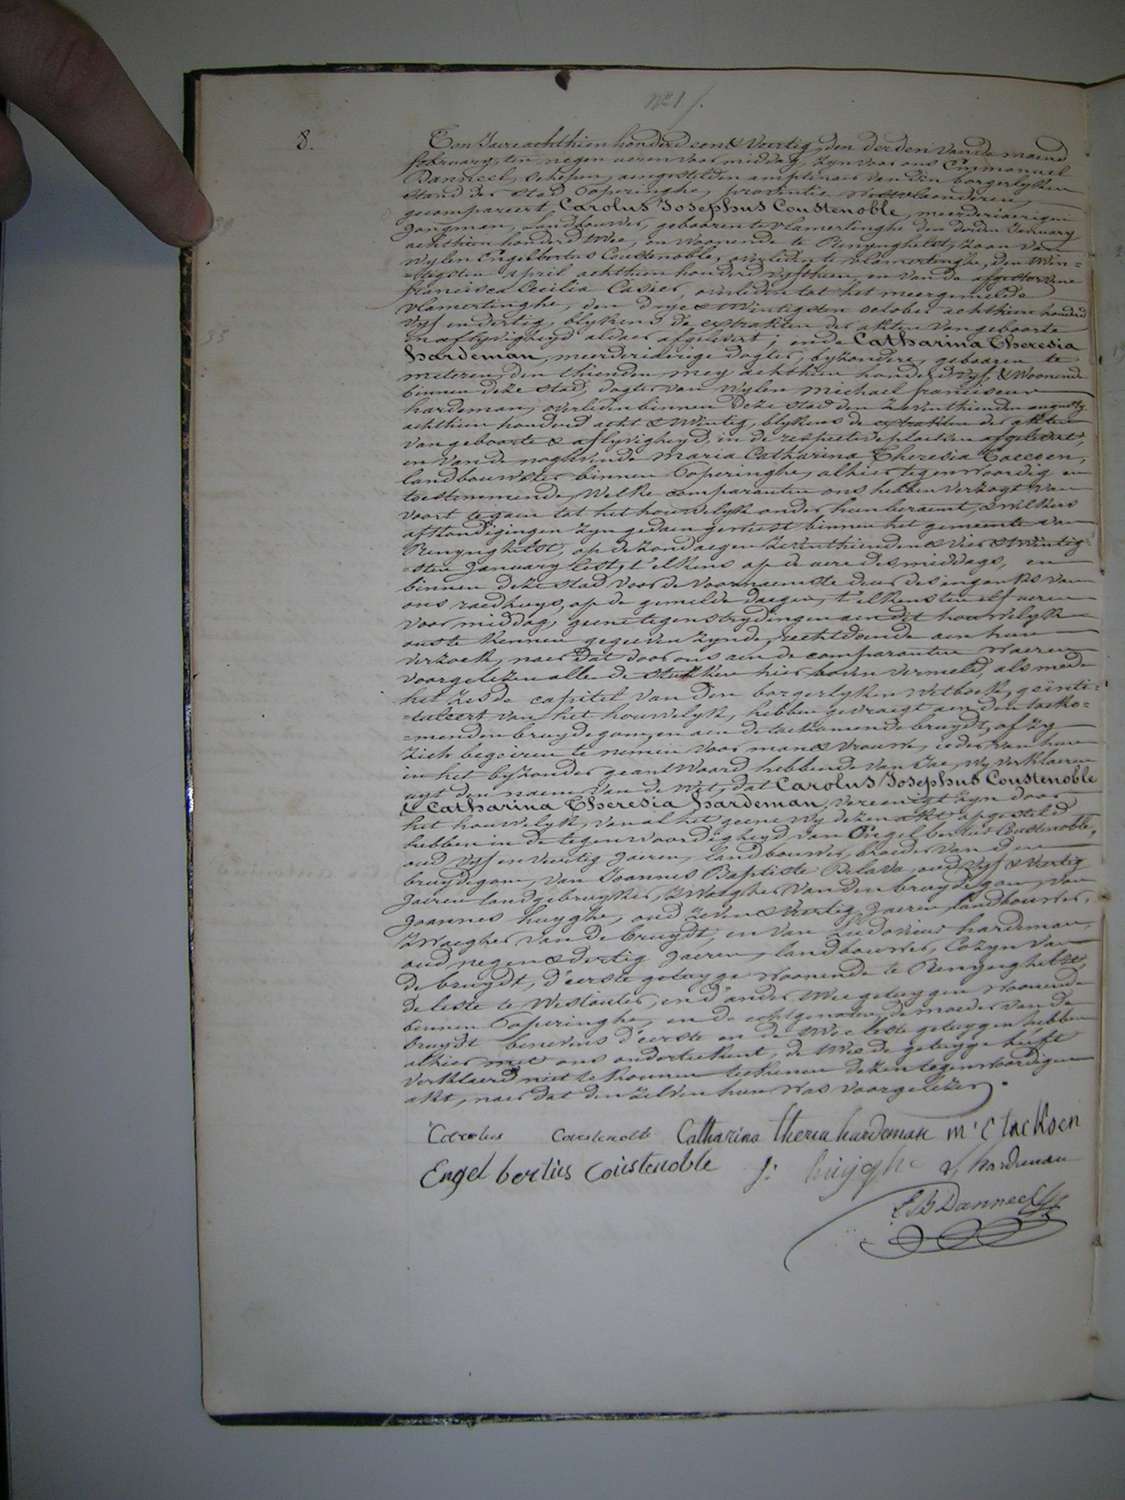 N° 1/.
8.
Ten Jaere achthien honderd een & Veertig, den derden van de maend
february, ten negen ueren voor middag, zyn voor ons Emmanuel
Danneel, Schepen, aengestelden amptenaer van den borgerlyken
stand der stad Poperinghe, provintie Westvlaenderen,
gecompareert Carolus Josephus Coustenoble, meerderjaerigen
jongman, landbouwer, gebooren te vlamertinghe den derden January
achthien honderd twee, en Woonende te Renynghelst, zoon van
wylen Engelbertus Coustenoble, overleden te vlamertinghe, den twin=
=tigsten april achthien honderd vyfthien, en van de afgestorvene
francisca Cecilia Casier, overleden tot het meergemelde
vlamertinghe, den drye & twintigsten october achthien honderd
vyf en dertig, blykens de extrakten der akten van geboorte
en aflyvigheyd aldaer afgelevert; ende Catharina Theresia
hardeman, meerderjaerige dogter, byzondere, gebooren te
meteren, den thienden mey achthien honderd vyf, & Woonende
binnen deze stad, dogter van wylen Michael franciscus
hardeman, overleden binnen deze stad den zeventhienden augusty
achthien honderd acht & twintig, blykens de extrakten der akten
van geboorte & aflyvigheyd, in de respective plaetsen afgelevert,
en van de noglevende Maria Catharina Theresia
landbouwster binnen Poperinghe, alhier tegenwoordig en
toestemmende, Welke comparanten ons hebben verzogt van
voort te gaen tot het houwelyk onder hun beraemt, & wilkers
afkondigingen zyn gedaen geweest binnen het gemeente van
Renynghelst, op de zondaegen zeventhienden & vier & twintig=
=sten January lest, t'elkens op de uere des middags, en
binnen deze stad voor de voornaemste deur des ingangs van
ons raedhuys, op de gemelde daegen, t'elkens ten elf ueren
voor middag; geene tegenstrydingen aen dit houwelyk
ons te kennen gegeeven zynde, rechtdoende aen hun
verzoek, naer dat door ons aen de comparanten waeren
voorgelezen alle de stukken hier boven vermeld, als mede
het zesde capitel van den borgerlyken Wetboek, geinti=
=tuleert van het houwelyk, hebben gevraegt aen den toeko=
=menden bruydegom, en aen de toekomende bruydt, of zy
zich begeiren te nemen voor man & vrouw, ieder van hun
in het byzonder geantWoord hebbende van Jae, wy verklaeren
uyt den naem van de Wet, dat Carolus Josephus Coustenoble
& Catharina Theresia hardeman, vereenigt zyn door
het houwelyk, van al het geene wy dezen akt opgesteld
hebben in de tegenwoordigheyd van Engelbertus Coustenoble,
oud vyf en veertig jaeren, landbouwer, broeder van den
bruydegom, van Joannes Baptiste oud vyf & veertig
jaeren landgebruyker, zWaegher van den bruydegom, van
Joannes huyghe, oud zeven & veertig jaeren, landbouwer,
zWaegher van de bruydt, en van Ludovicus hardeman,
oud negen & dertig jaeren, landbouwer, Cozyn van
de bruydt, d'eerste getuyge Woonende te Renynghelst,
de leste te Westouter, en d'ander twee getuygen Woonende
binnen Poperinghe, en de echtgenooten, de moeder van de
bruydt benevens d'eerste en de twee leste getuygen hebben
alhier met ons onderteekent, de tweede getuyge heeft
verklaerd niet te konnen teekenen dezen tegenwoordigen
akt, naer dat den zelven hun was voorgelezen.
Carolus Coustenoble Catharina theresia hardeman m' C tackoen
Engelbertus Coustenoble J: huyghe L hardeman
E B Danneel